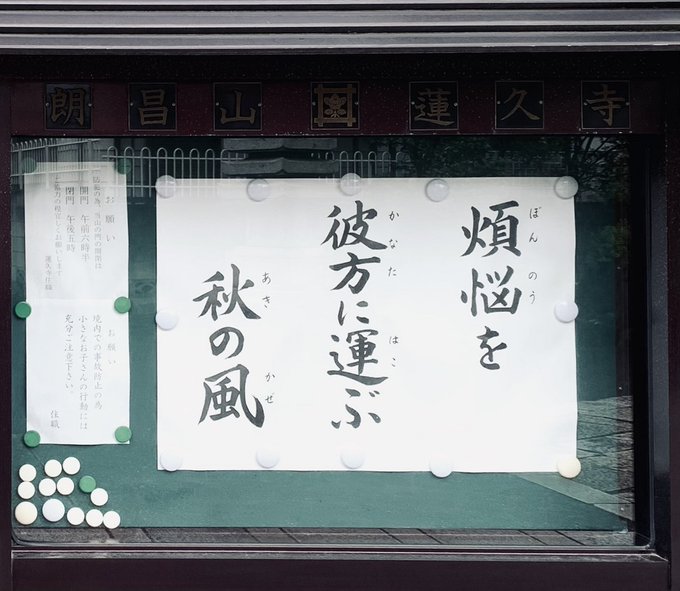 朗昌山 蓮久寺
煩悩を
彼方に運ぶ
秋の風
ぼんのう
かなた
はこ
あき
かぜ
お願い
開門 午前六時半
閉門 午後五時
蓮久寺住職
お願い
境内での事故防止の為
小さなお子さんの行動には
充分ご注意下さい。
住職